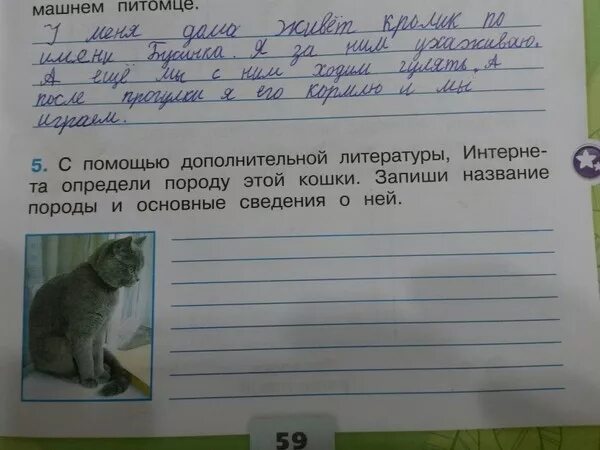 машнем питомце.
У меня дома живёт кролик по
имени Бусинка. Я за ним ухаживаю.
А ещё мы с ним ходим гулять. А
после прогулки я его кормлю и мы
играем.
5. С помощью дополнительной литературы, Интерне-
та определи породу этой кошки. Запиши название
породы и основные сведения о ней.
59